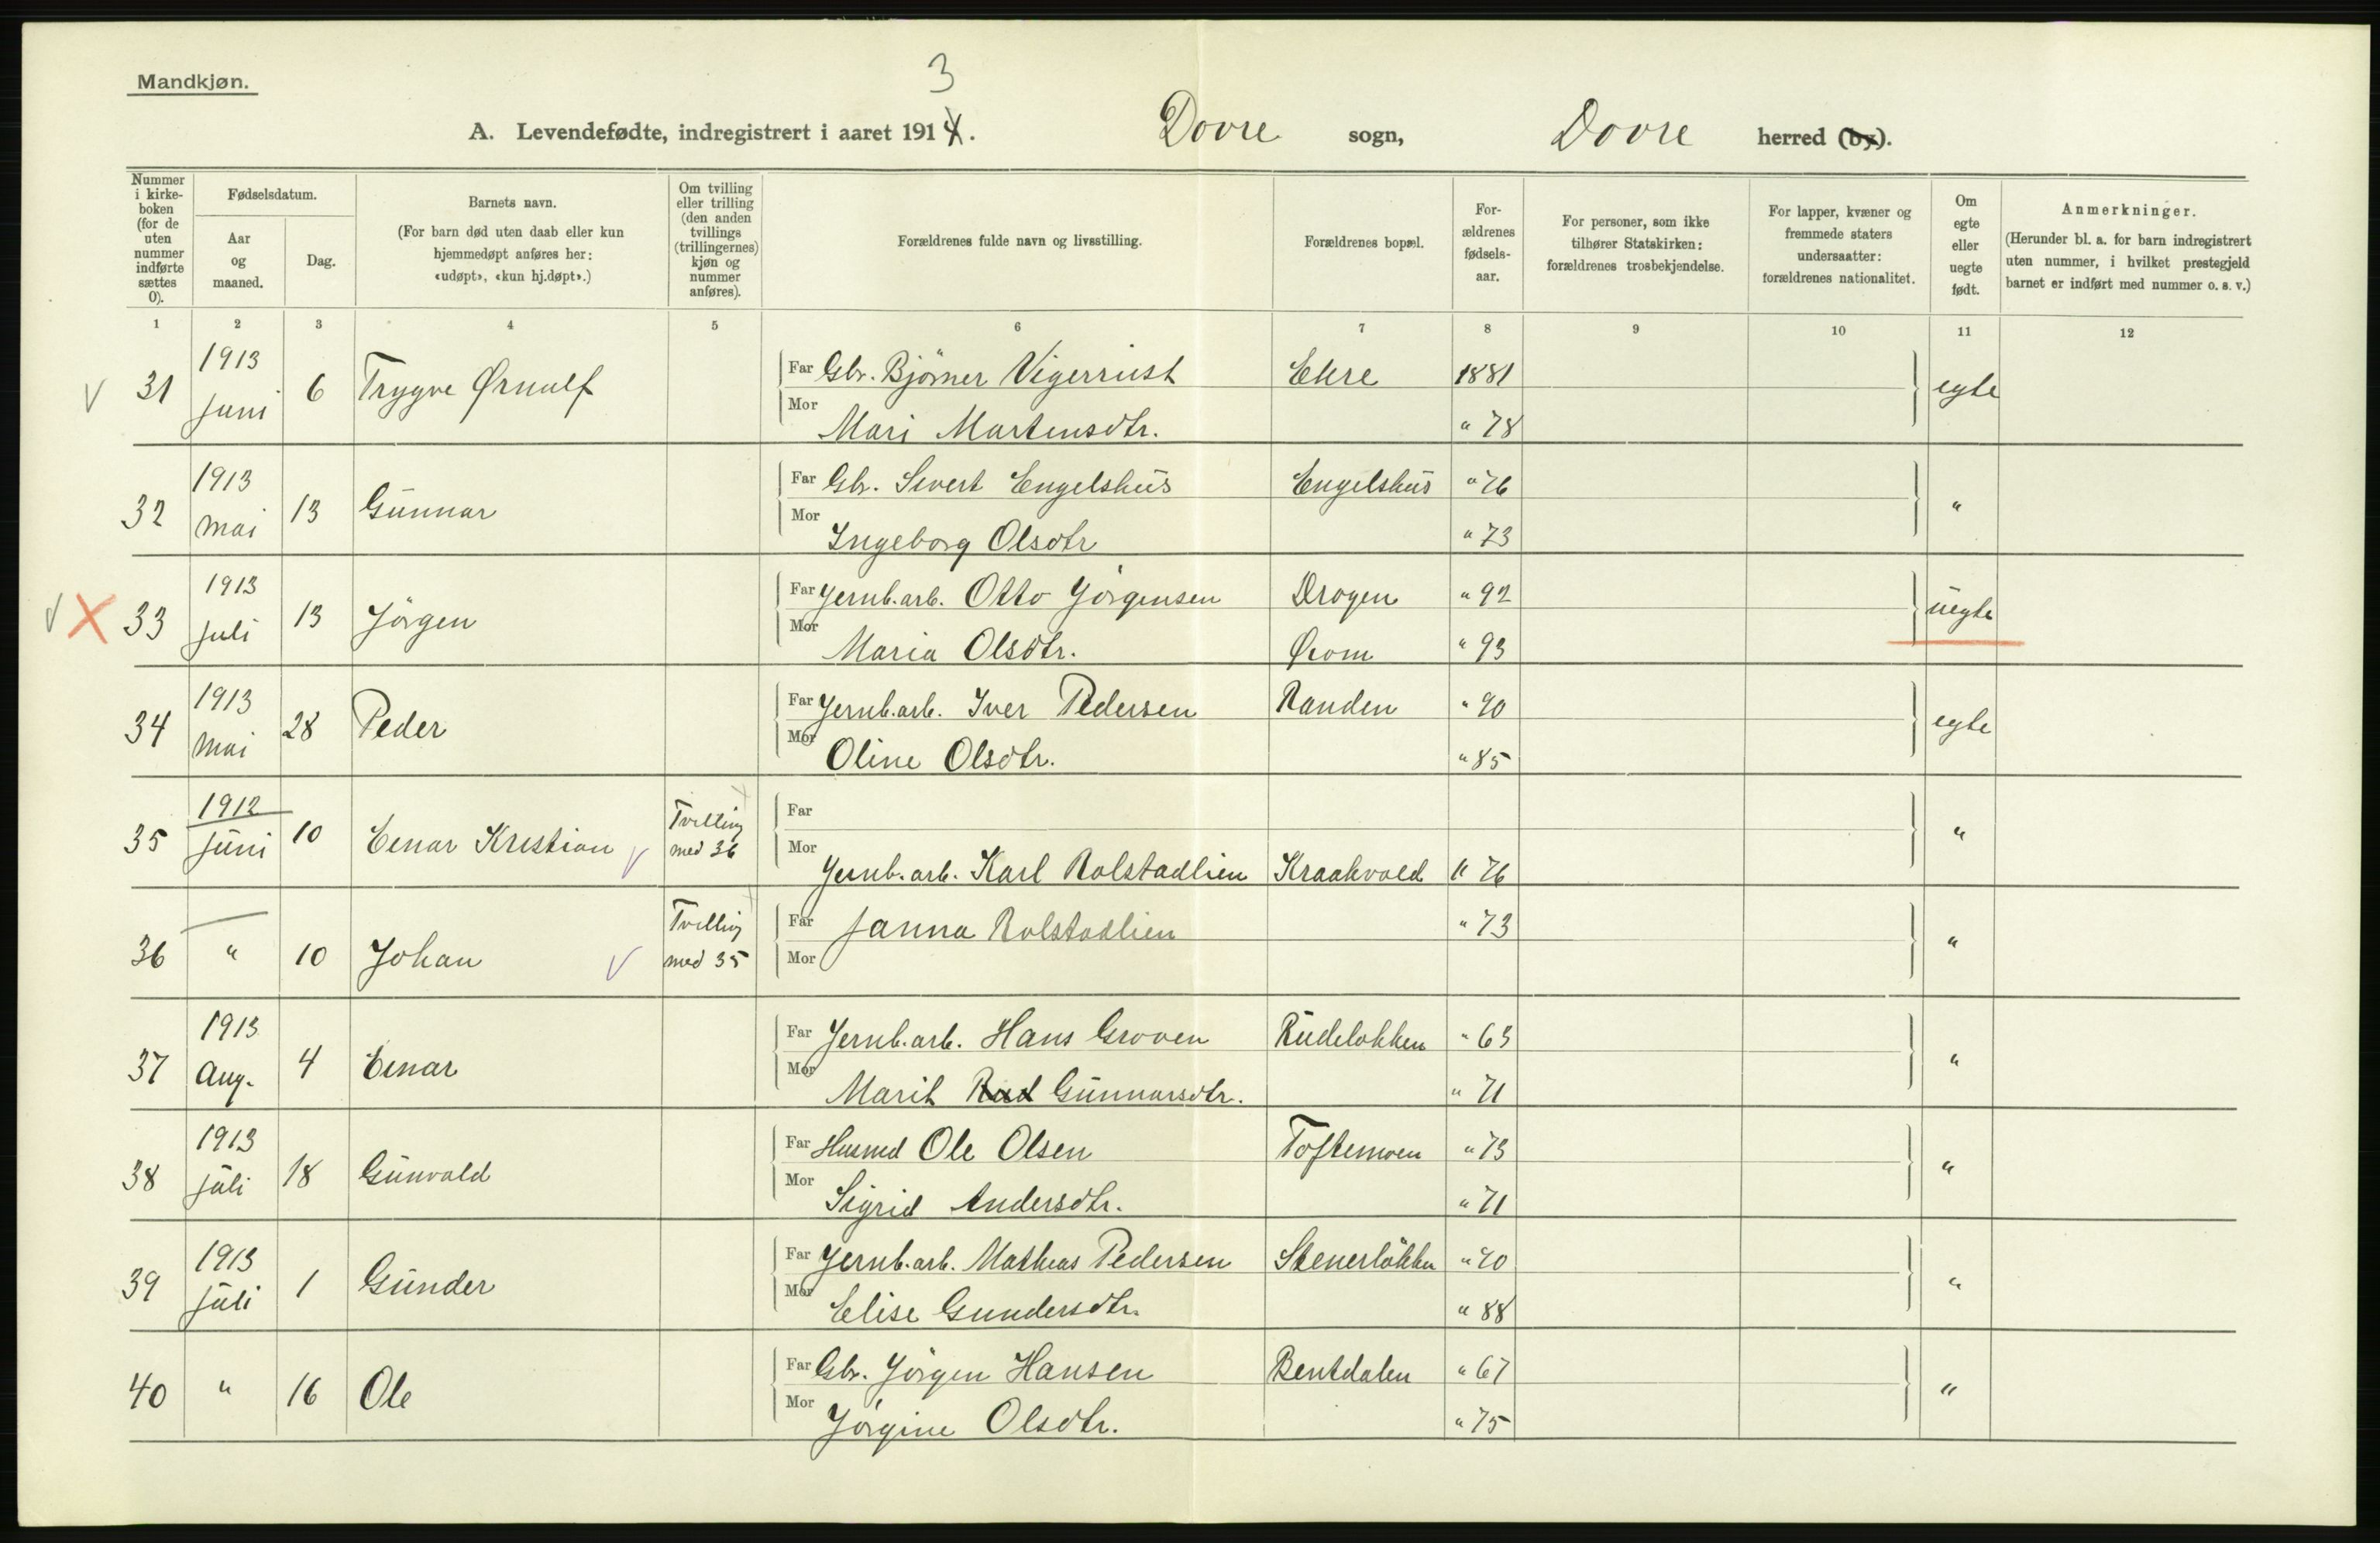 Mandkjøn.
3
A. Levendefødte, indregistrert i aaret 1914. Dovre sogn, Dovre herred (by).
Nummer i kirke-boken (for de uten nummer indførte sættes 0).
Fødselsdatum.
Aar og maaned.
Dag.
Barnets navn.
(For barn død uten daab eller kun hjemmedøpt anføres her: «udøpt», «kun hj.døpt».)
Om tvilling eller trilling (den anden tvillings (trillingernes) kjøn og nummer anføres).
Forældrenes fulde navn og livsstilling.
Forældrenes bopæl.
For-ældrenes fødsels-aar.
For personer, som ikke tilhører Statskirken: forældrenes trosbekjendelse.
For lapper, kvæner og fremmede staters undersaatter: forældrenes nationalitet.
Om egte eller uegte født.
Anmerkninger.
(Herunder bl. a. for barn indregistrert uten nummer, i hvilket prestegjeld barnet er indført med nummer o. s. v.)
1 2 3 4 5 6 7 8 9 10 11 12
V 31 1913 juni 6 Trygve Ørnulf Far Gbr. Bjørner Vigerust Ekre 1881 egte
Mor Mari Martensdtr. " 78
32 1913 mai 13 Gunnar Far Gbr. Sivert Engelshus Engelshus " 76 "
Mor Ingeborg Olsdtr " 73
V X 33 1913 juli 13 Jörgen Far Jernb.arb. Otto Jörgensen Drogen " 92 uegte
Mor Maria Olsdtr. " 93
34 1913 mai 28 Peder Far Jernb.arb. Iver Pedersen Randen " 90 egte
Mor Oline Olsdtr. " 85
35 1912 juni 10 Einar Kristian V Tvilling med 36 Far "
Mor Jernb.arb. Karl Rolstadlien Kraakvold " 76
36 " 10 Johan V Tvilling med 35 Far Janna Rolstadlien " 73 "
Mor
37 1913 Aug. 4 Einar Far Jernb.arb. Hans Groven Rudelokken " 63 "
Mor Marit Gunnarsdtr. " 71
38 1913 juli 18 Gunvald Far Husmd Ole Olsen Toftemoen " 73 "
Mor Sigrid Andersdtr. " 71
39 1913 juli 1 Gunder Far Jernb.arb. Mathias Pedersen Stenerlökken " 90 "
Mor Elise Gundersdtr. " 88
40 " 16 Ole Far Gbr. Jörgen Hansen Bentdalen " 67 "
Mor Jörgine Olsdtr. " 75